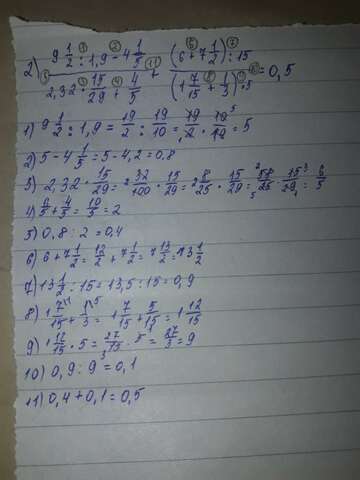 2) (9 1/2 : 1,9 - 4 1/5) / (2,32 · 15/29 + 4/5) + ((6 + 7 1/2) : 15) / ((1 7/15 + 1/3) · 5) = 0,5
1) 9 1/2 : 1,9 = 19/2 : 19/10 = 19/2 · 10/19 = 5
2) 5 - 4 1/5 = 5 - 4,2 = 0,8
3) 2,32 · 15/29 = 2 32/100 · 15/29 = 2 8/25 · 15/29 = 58/25 · 15/29 = 6/5
4) 6/5 + 4/5 = 10/5 = 2
5) 0,8 : 2 = 0,4
6) 6 + 7 1/2 = 12/2 + 7 1/2 = 7 13/2 = 13 1/2
7) 13 1/2 : 15 = 13,5 : 15 = 0,9
8) 1 7/15 + 1/3 = 1 7/15 + 5/15 = 1 12/15
9) 1 12/15 · 5 = 27/15 · 5 = 27/3 = 9
10) 0,9 : 9 = 0,1
11) 0,4 + 0,1 = 0,5